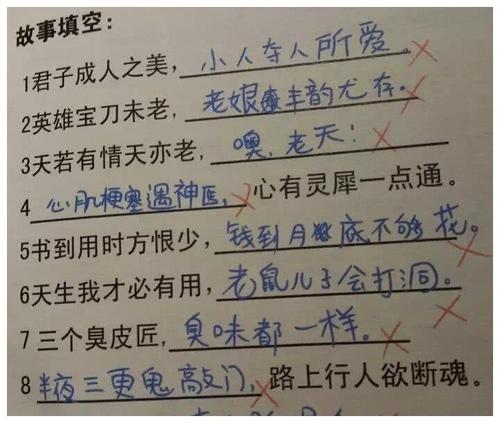 故事填空：
1君子成人之美，小人夺人所爱。
2英雄宝刀未老，老娘丰韵尤存。
3天若有情天亦老，噢，老天！
4心肌梗塞遇神医，心有灵犀一点通。
5书到用时方恨少，钱到月底不够花。
6天生我才必有用，老鼠儿子会打洞。
7三个臭皮匠，臭味都一样。
8半夜三更鬼敲门，路上行人欲断魂。